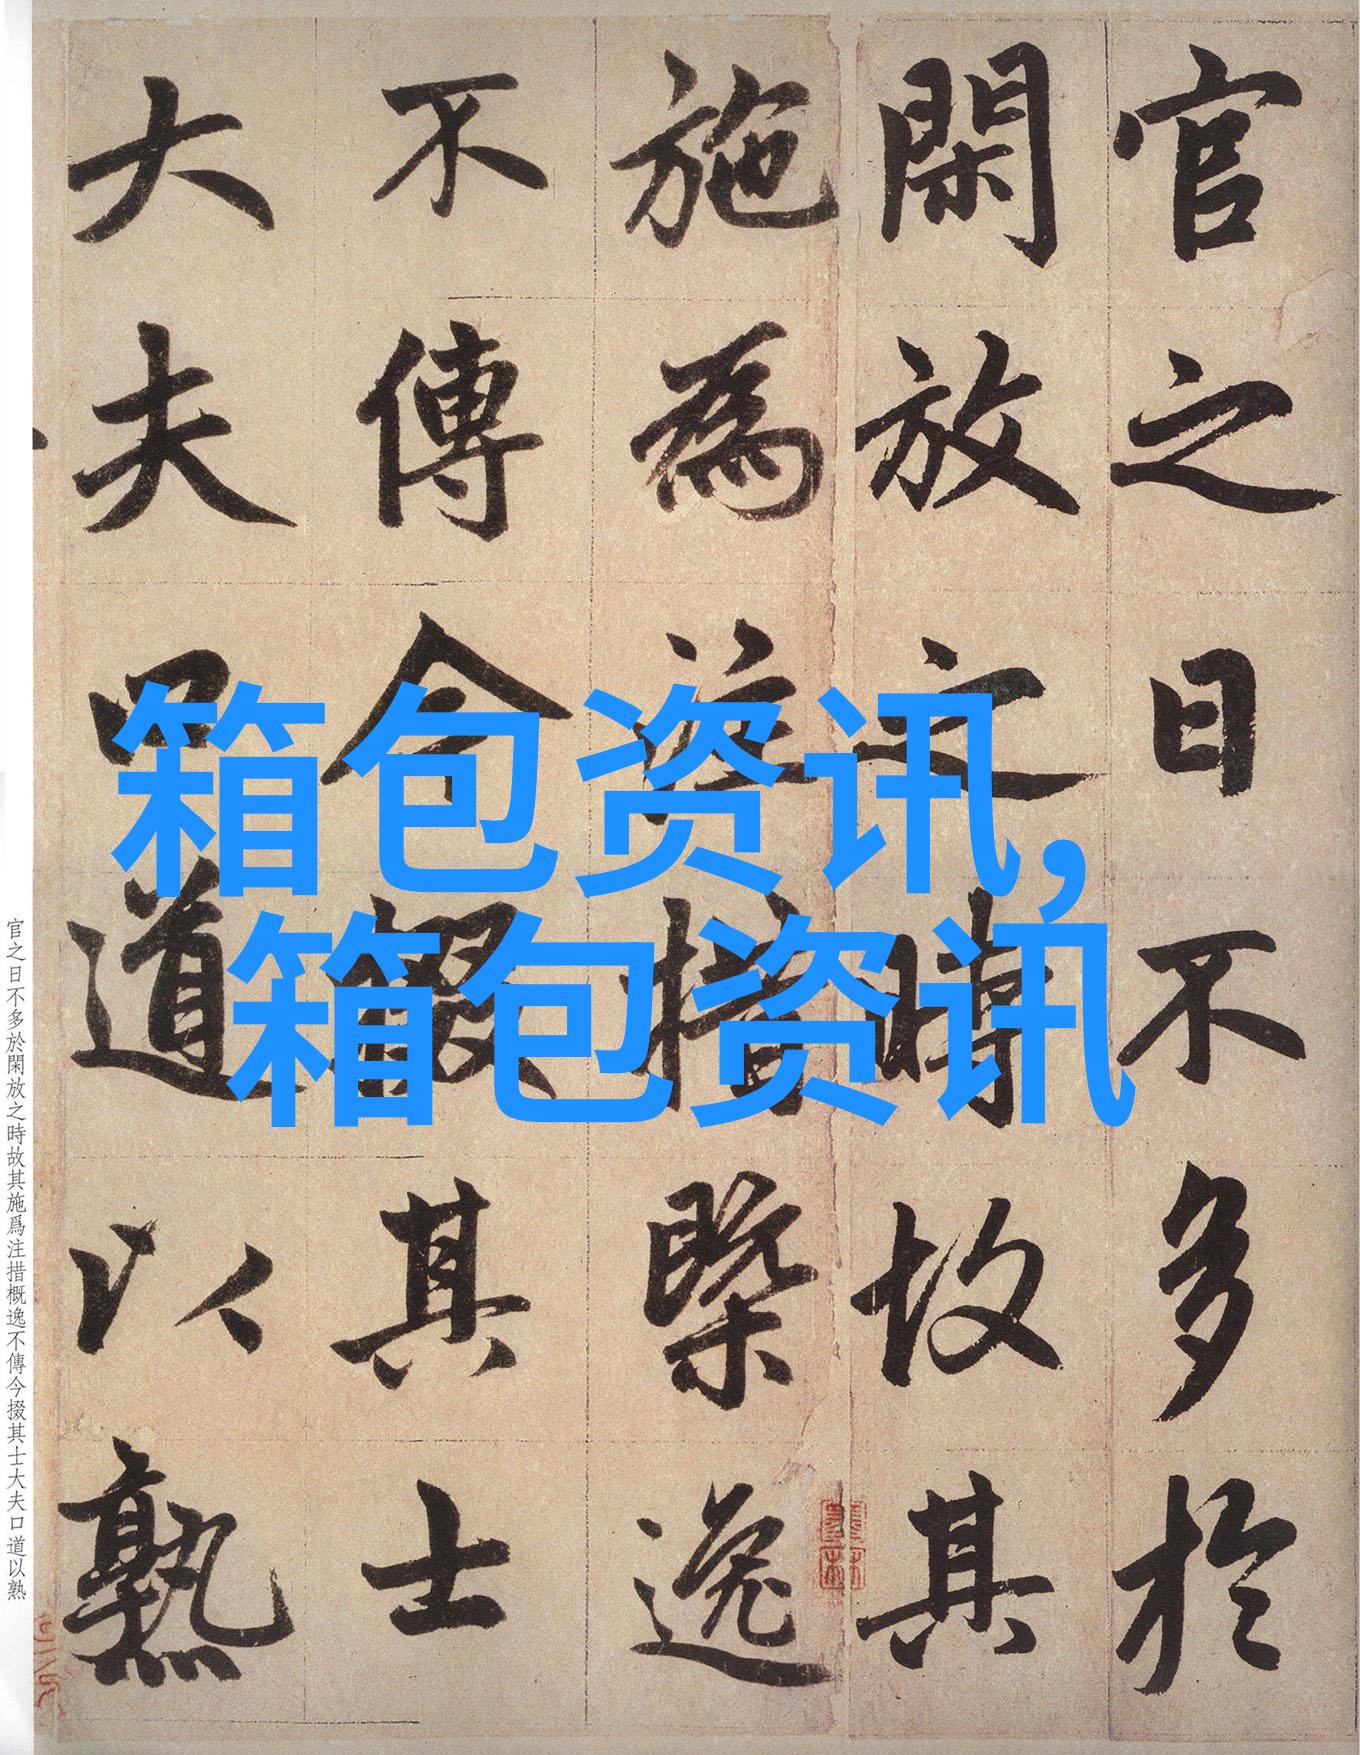 官之日不多於
閑放之時故其
施為注措槩逸
不傳今掇其士
大夫口道以熟
箱包资讯,
箱包资讯
官之日不多於閑放之時故其施爲注措概逸不傳今掇其士大夫口道以熟